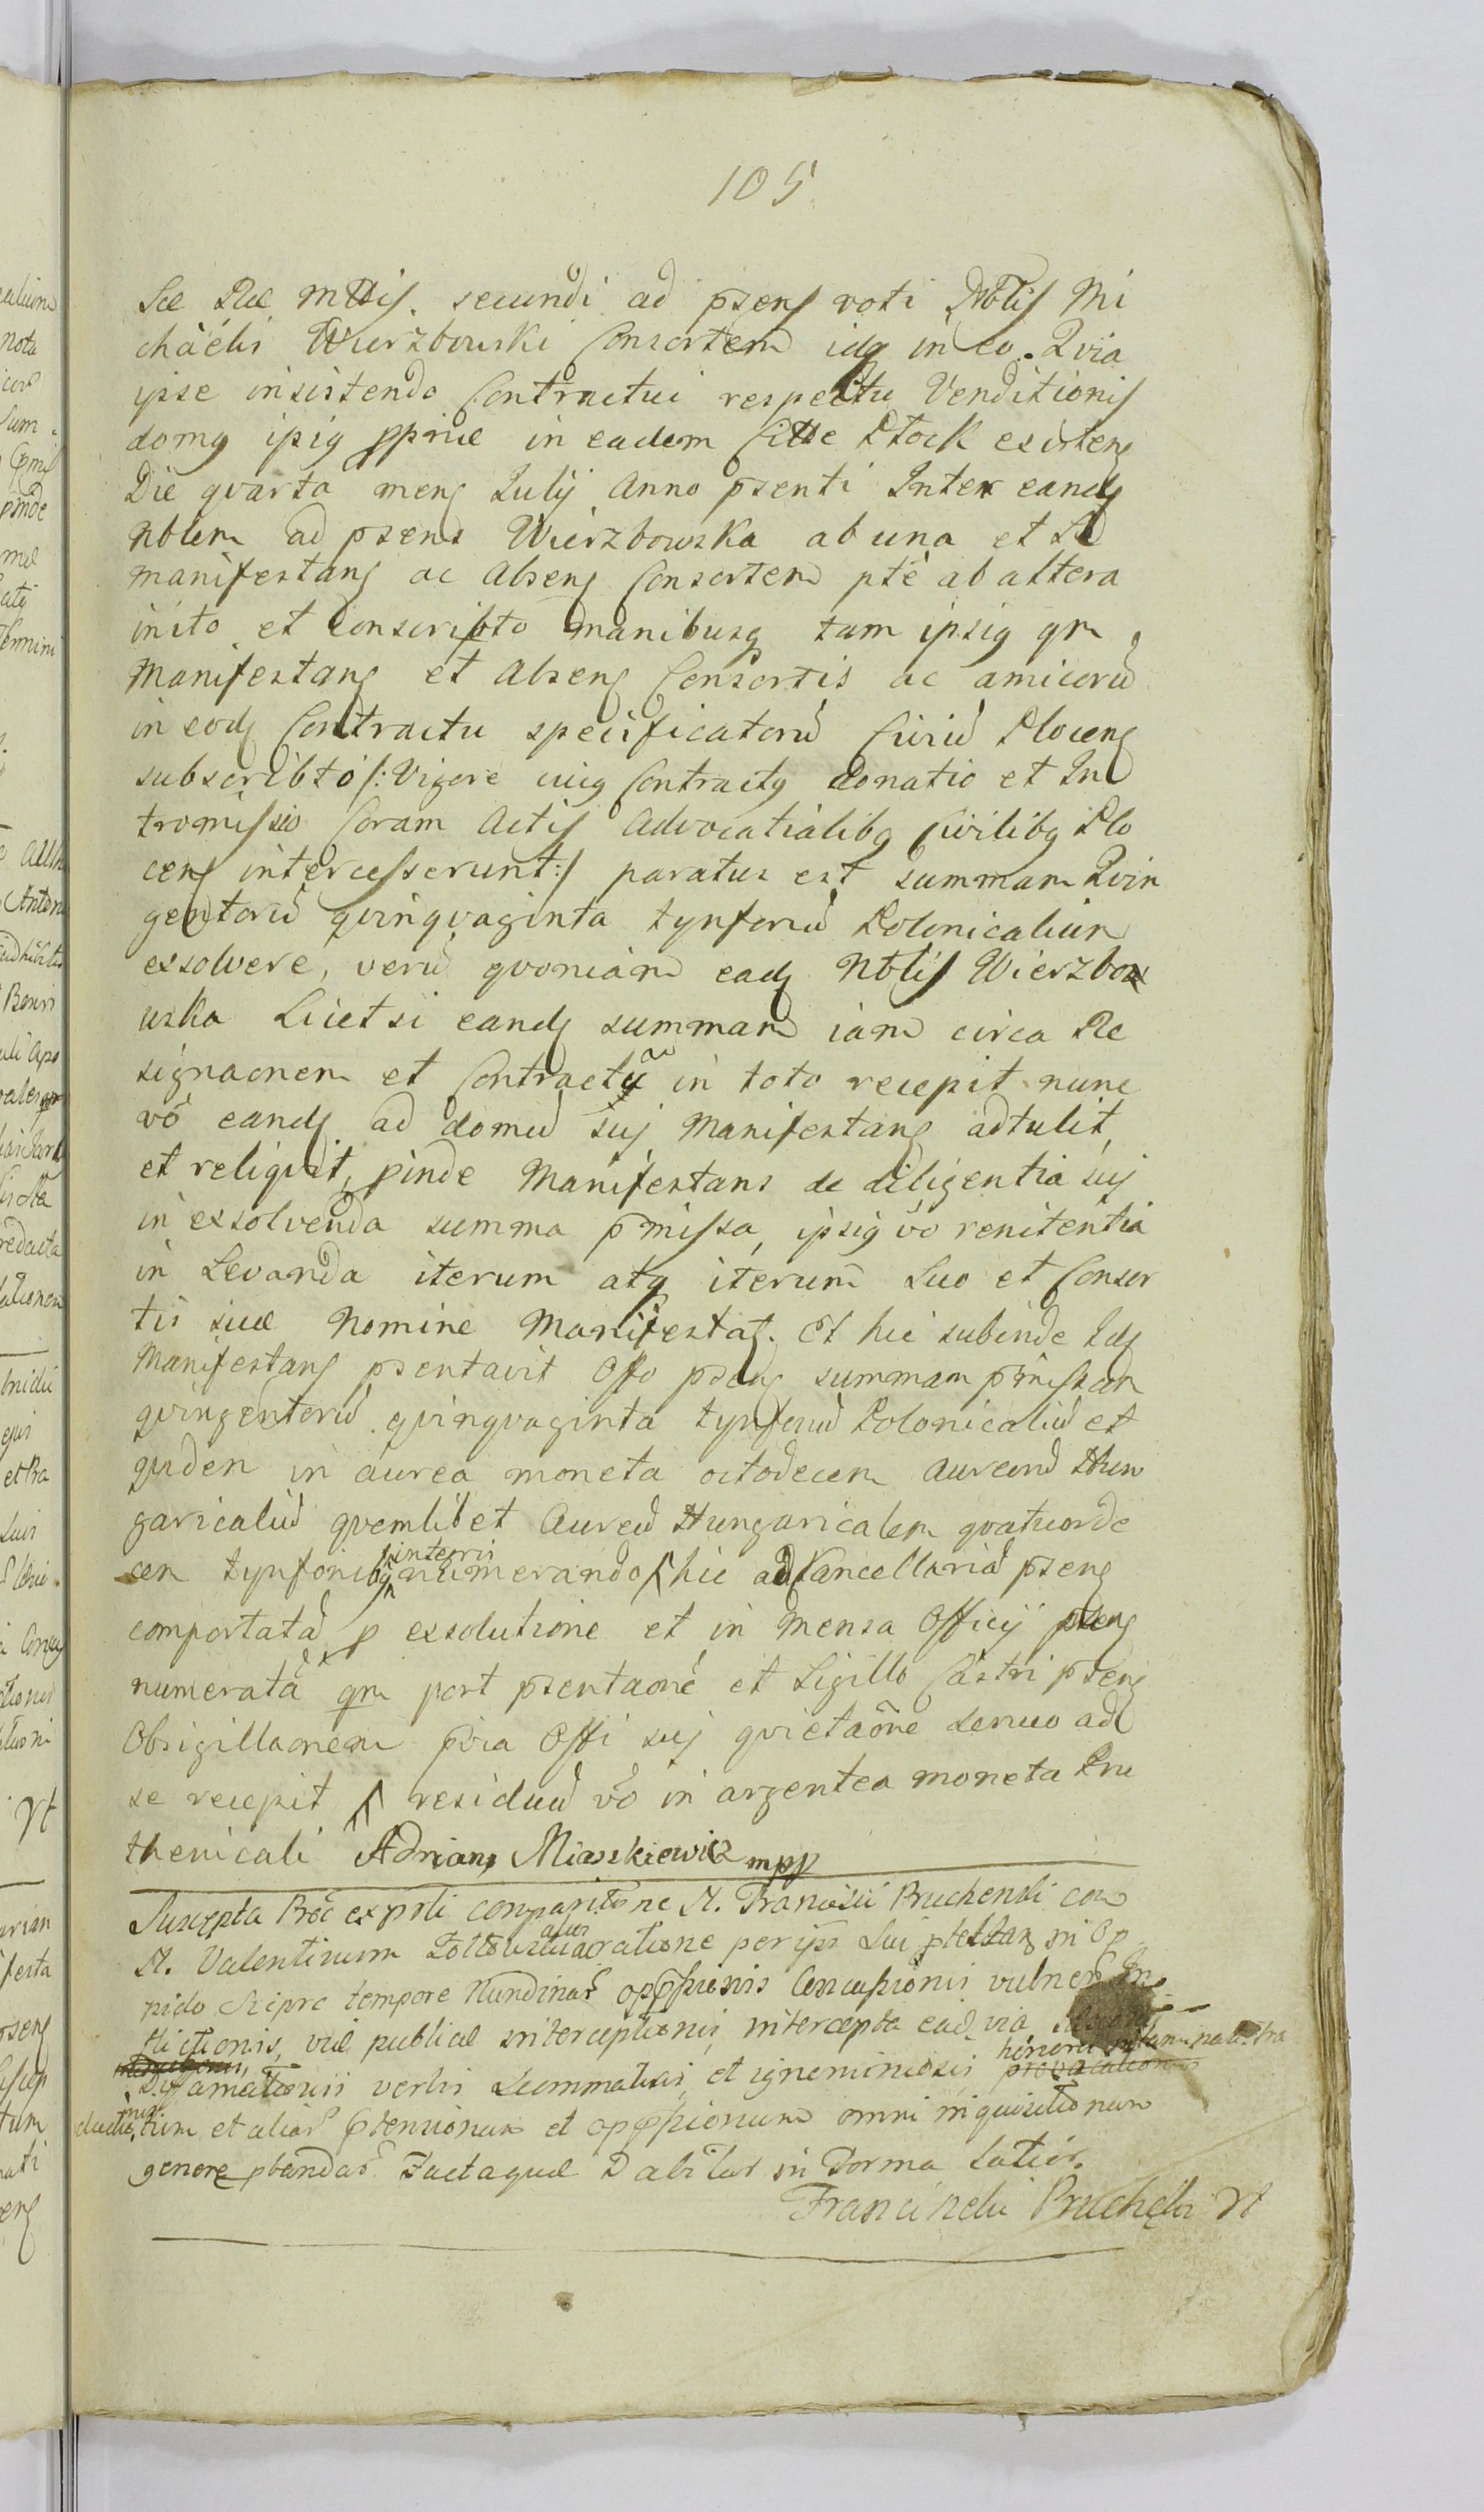 105
Sae Rae Mttis. secundi ad psens voti Nblis Mi
chäelis Wierzbowski Consortem idq in eo. Qvia
ipse insistendo Contractui respectu Venditionis
domq ipiq ppriae in eadem Citte Płock existens
Die qvarta mens Julij Anno psenti Inter eandq
Nblem ad psens Wierzbowska ab una et Se
manifestans ac Absens Consortem pte ab altera
inito et Conscripto manibusq tam ipsiq qm
Manifestans et Absens Consortis ac amicorū
in eodq Contractu specificatorū Civiū Plocens
subscribto /: Vigore cuiq Contractq donatio et In
tromissio Coram Actis Advocatialibq Civilibq Plo
cens intercesserunt :/ paratus est summam Qvin
gentorū qvinqvaginta tynforū Polonicalium
exsolvere, verū qvoniam eadq Nblis Wierzbow
uska Licet si eandq summam iam circa Re
signaonem et Contractū in toto recepit nunc
vo eandq ad domū suj Manifestans adtulit,
et reliqvit, pinde Manifestans de diligentia suj
in exsolvenda summa pmissa, ipsiq vo renitentia
in Levanda iterum atq iterum Suo et Consor
tis suae Nomine Manifestat. Et hic subinde Idq
Manifestans psentavit Offo psens summam pmissam
qvingentorū qvinqvaginta tynforū Polonicaliū et
qvidem in aurea moneta octodecem Aureorū Hun
garicaliū qvemlibet Aureū Hungaricalem qvatuorde
cem tynforibq integris numerando hic ad Cancellariā psens
comportatā p exsolutione et in Mensa Officij psens
numeratā qm post psentaone et Sigillo Castri psens
Obsigillaonem pvia Offi suj qvietaone denuo ad
se recepit residuū vo in argentea moneta Pru
thenicali Adrianq Miaszkiewicz mpp
Suscepta Proc ex psti comparitione N. Francisci Pruchenski con
N. Valentinum alias ratione per ips Sui in Op
pido Sieprc tempore Nundinar oppssionis Concussionis vulner In
flictionis, viae publicae interceptionis, intercepta ead via
Diffamationis verbis Scommaticis, et ignominiosis honoru
tium et aliar ptensionum et oppssionum omni inquisitionum
genere pbandar Factaque Dabitur in Forma Latior.
Franciszek Pruchęski